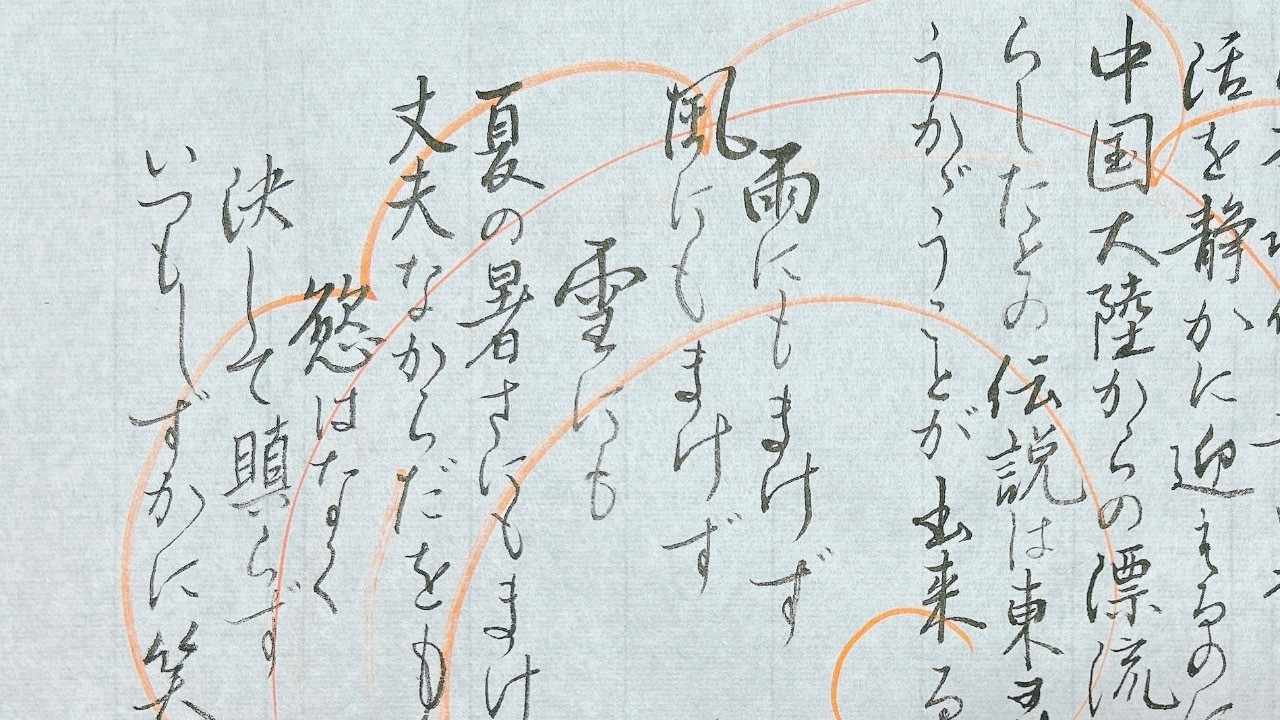 活を静かに迎えるの
中国大陸からの漂流
らしたとの伝説は東
うかがうことが出来る
雨にもまけず
風にもまけず
雪にも
夏の暑さにもまけ
丈夫なからだをも
慾はなく
決して瞋らず
いつもしずかに笑